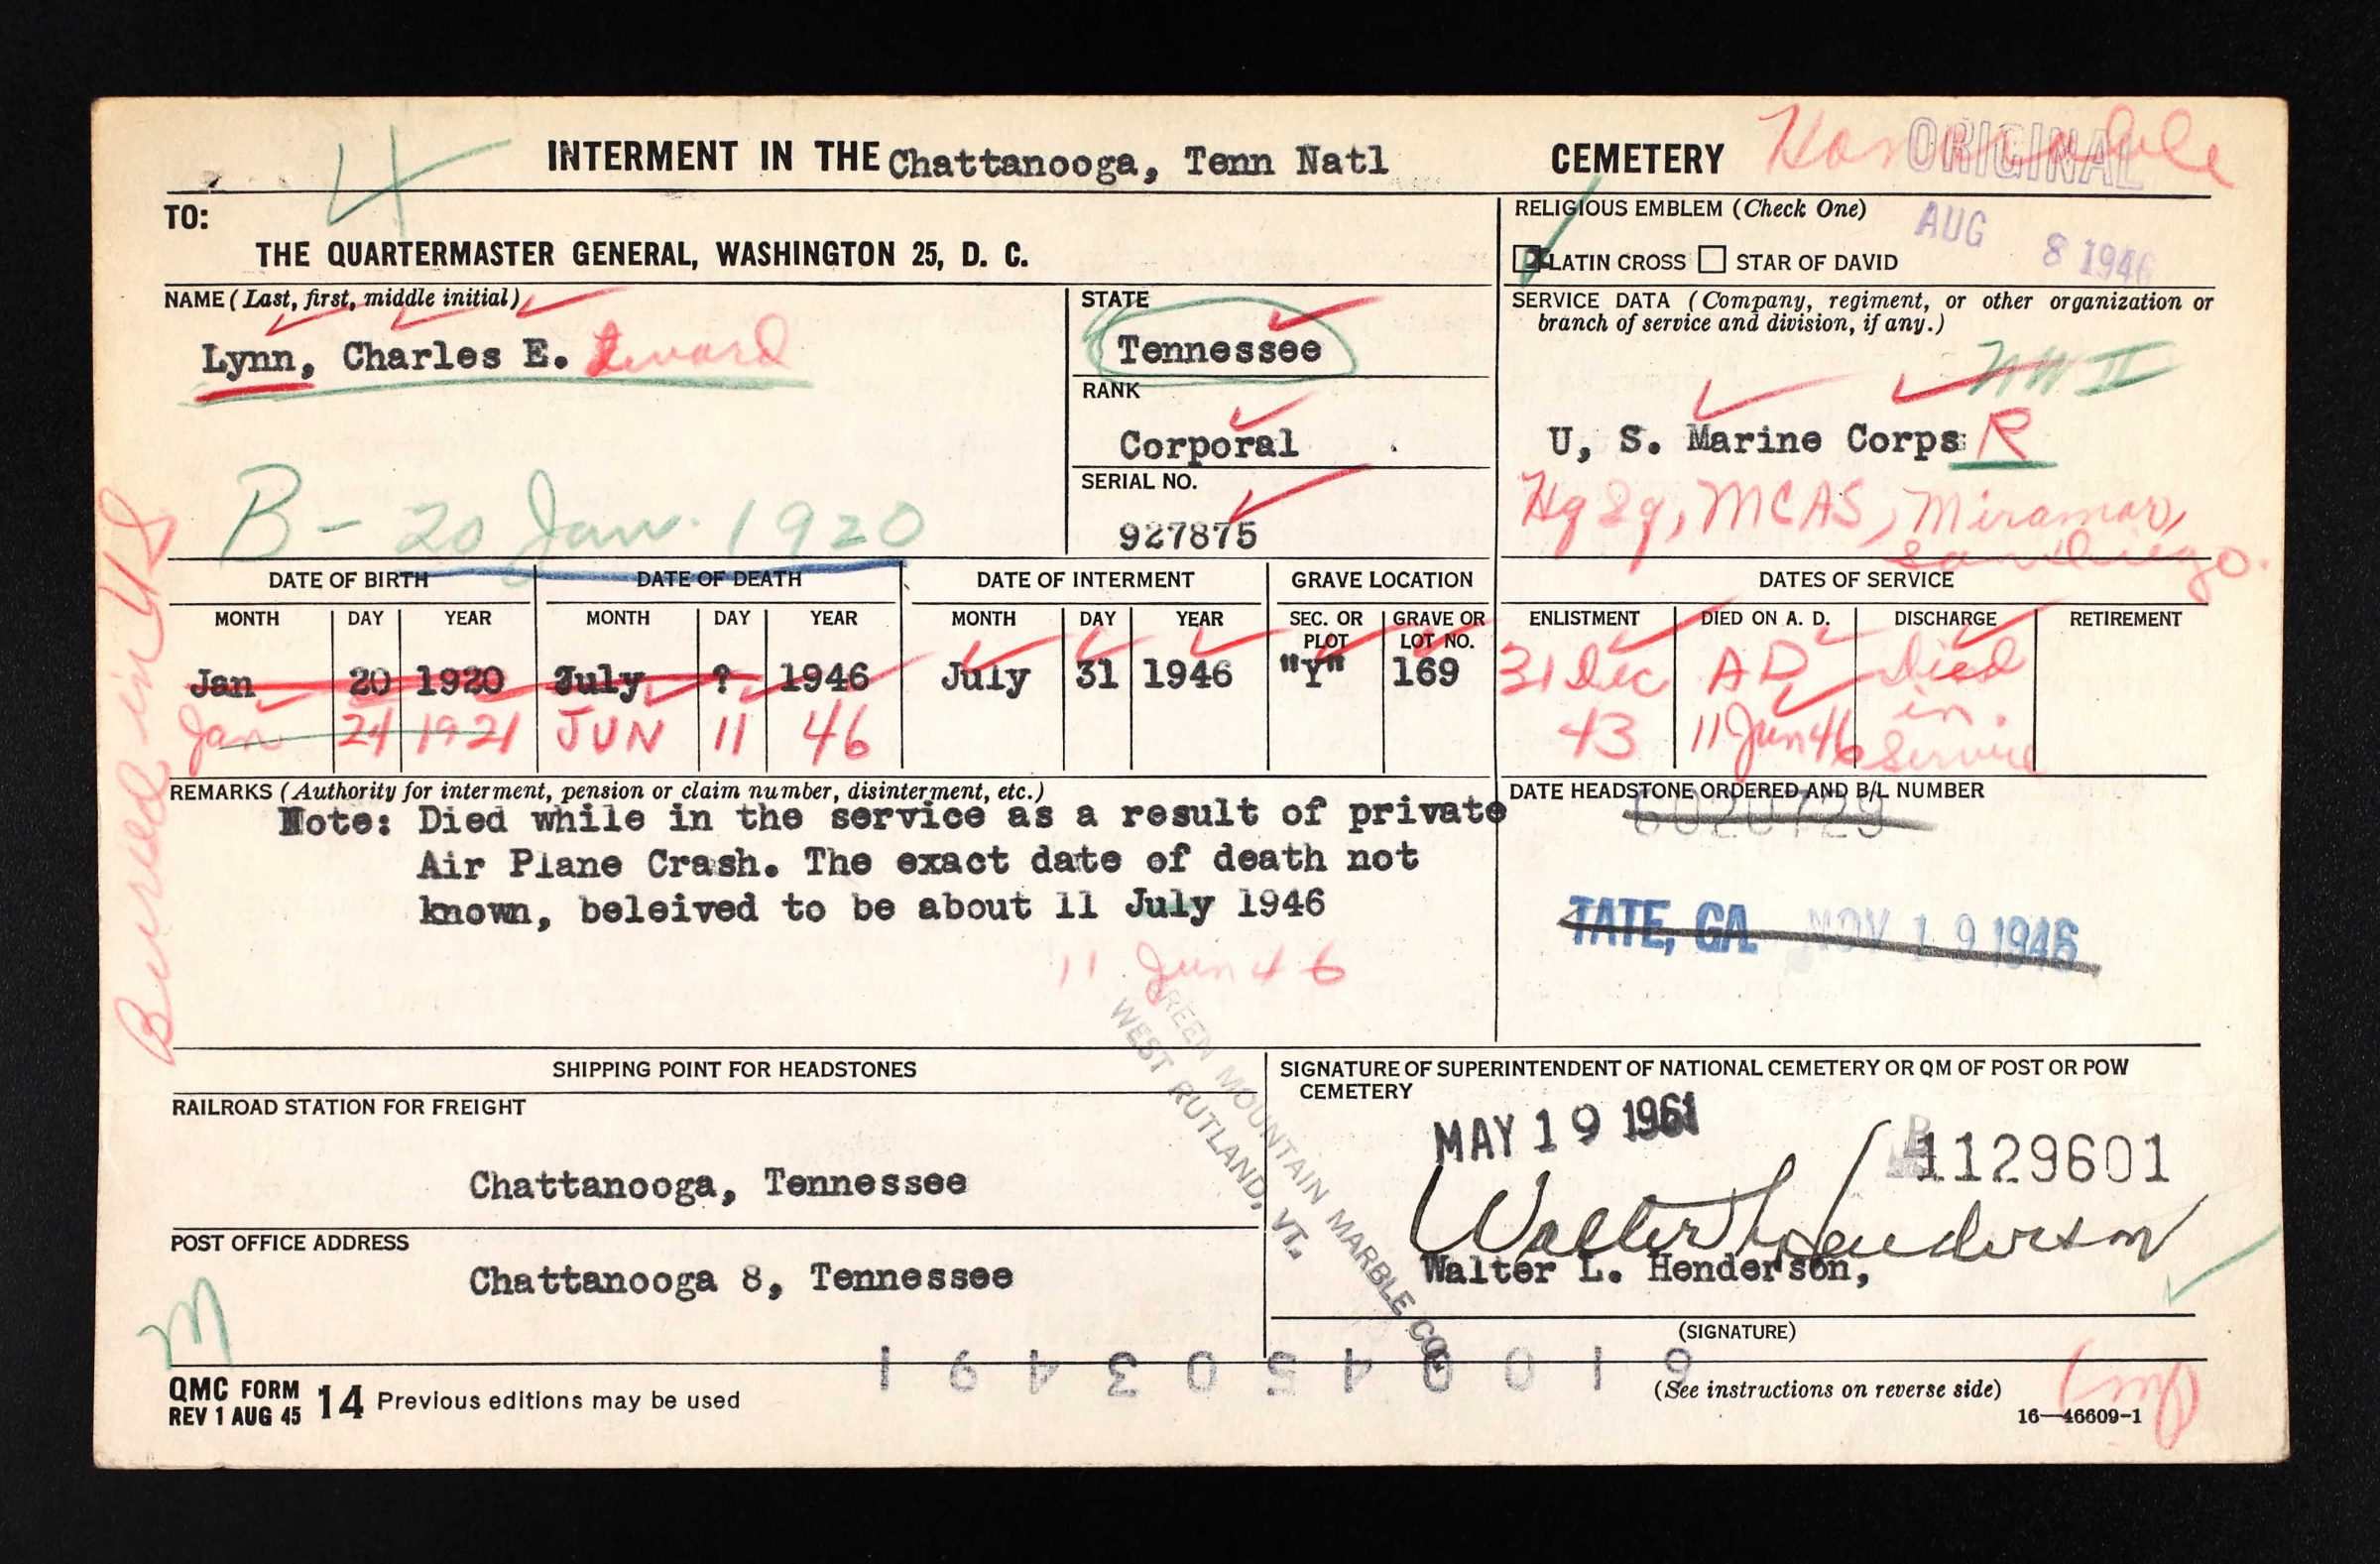 INTERMENT IN THE Chattanooga, Tenn Natl CEMETERY Honorable
ORIGINAL
4
TO:
THE QUARTERMASTER GENERAL, WASHINGTON 25, D. C.
RELIGIOUS EMBLEM (Check One)
AUG 8 1946
LATIN CROSS STAR OF DAVID
NAME (Last, first, middle initial)
Lynn, Charles E. Edward
B - 20 Jan. 1920
STATE
Tennessee
RANK
Corporal
SERIAL NO.
927875
SERVICE DATA (Company, regiment, or other organization or
branch of service and division, if any.)
WW II
U, S. Marine Corps R
Hq Sq, MCAS, Miramar,
San Diego.
DATE OF BIRTH DATE OF DEATH DATE OF INTERMENT GRAVE LOCATION DATES OF SERVICE
MONTH DAY YEAR MONTH DAY YEAR MONTH DAY YEAR SEC. OR PLOT GRAVE OR LOT NO. ENLISTMENT DIED ON A. D. DISCHARGE RETIREMENT
Jan 20 1920 July ? 1946 July 31 1946 "Y" 169 31 Dec AD Died
Jan 24 1921 JUN 11 46 43 11 Jun 46 in Service
Buried in US
REMARKS (Authority for interment, pension or claim number, disinterment, etc.)
Note: Died while in the service as a result of private
Air Plane Crash. The exact date of death not
known, beleived to be about 11 July 1946
11 Jun 46
DATE HEADSTONE ORDERED AND B/L NUMBER
6020729
TATE, GA. NOV 19 1946
GREEN MOUNTAIN MARBLE CO.
WEST RUTLAND, VT.
SHIPPING POINT FOR HEADSTONES
RAILROAD STATION FOR FREIGHT
Chattanooga, Tennessee
POST OFFICE ADDRESS
Chattanooga 8, Tennessee
M
SIGNATURE OF SUPERINTENDENT OF NATIONAL CEMETERY OR QM OF POST OR POW
CEMETERY
MAY 19 1961
1129601
Walter L Henderson
Walter L. Henderson,
(SIGNATURE)
QMC FORM 14 Previous editions may be used
REV 1 AUG 45
(See instructions on reverse side)
16—46609-1